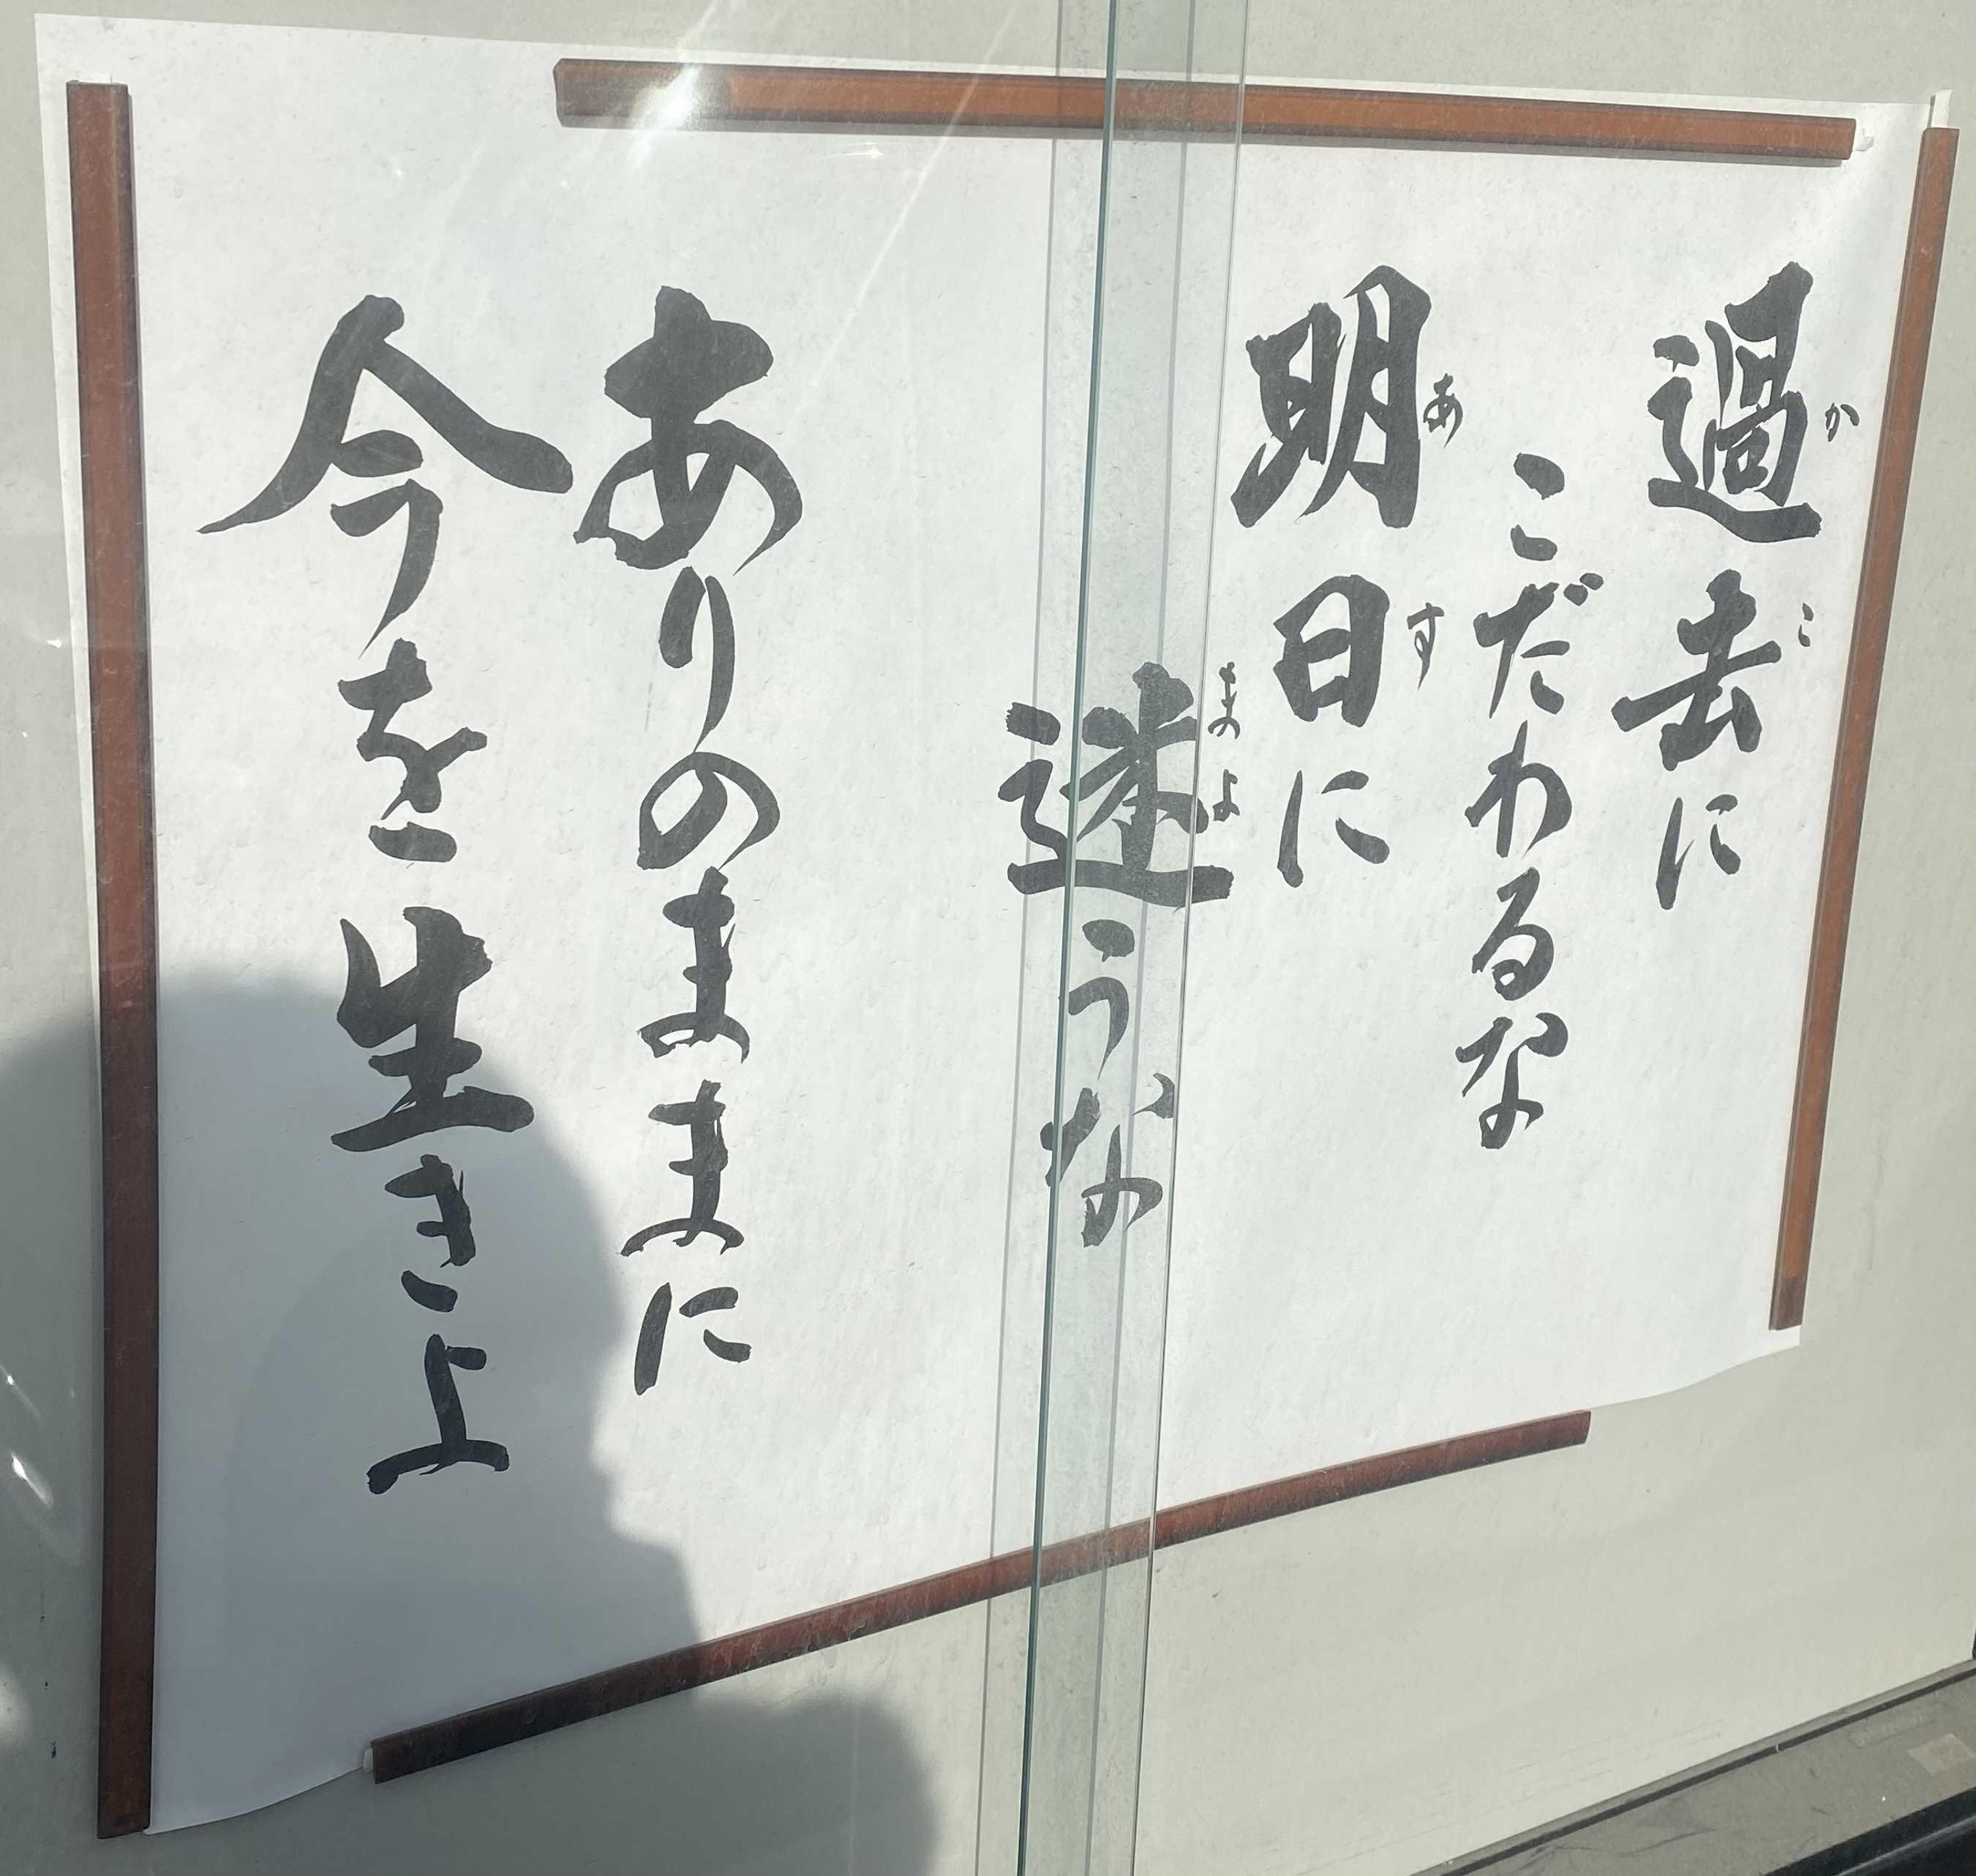 過去に
こだわるな
明日に
迷うな
ありのままに
今を生きよ
かこ
あす
まよ